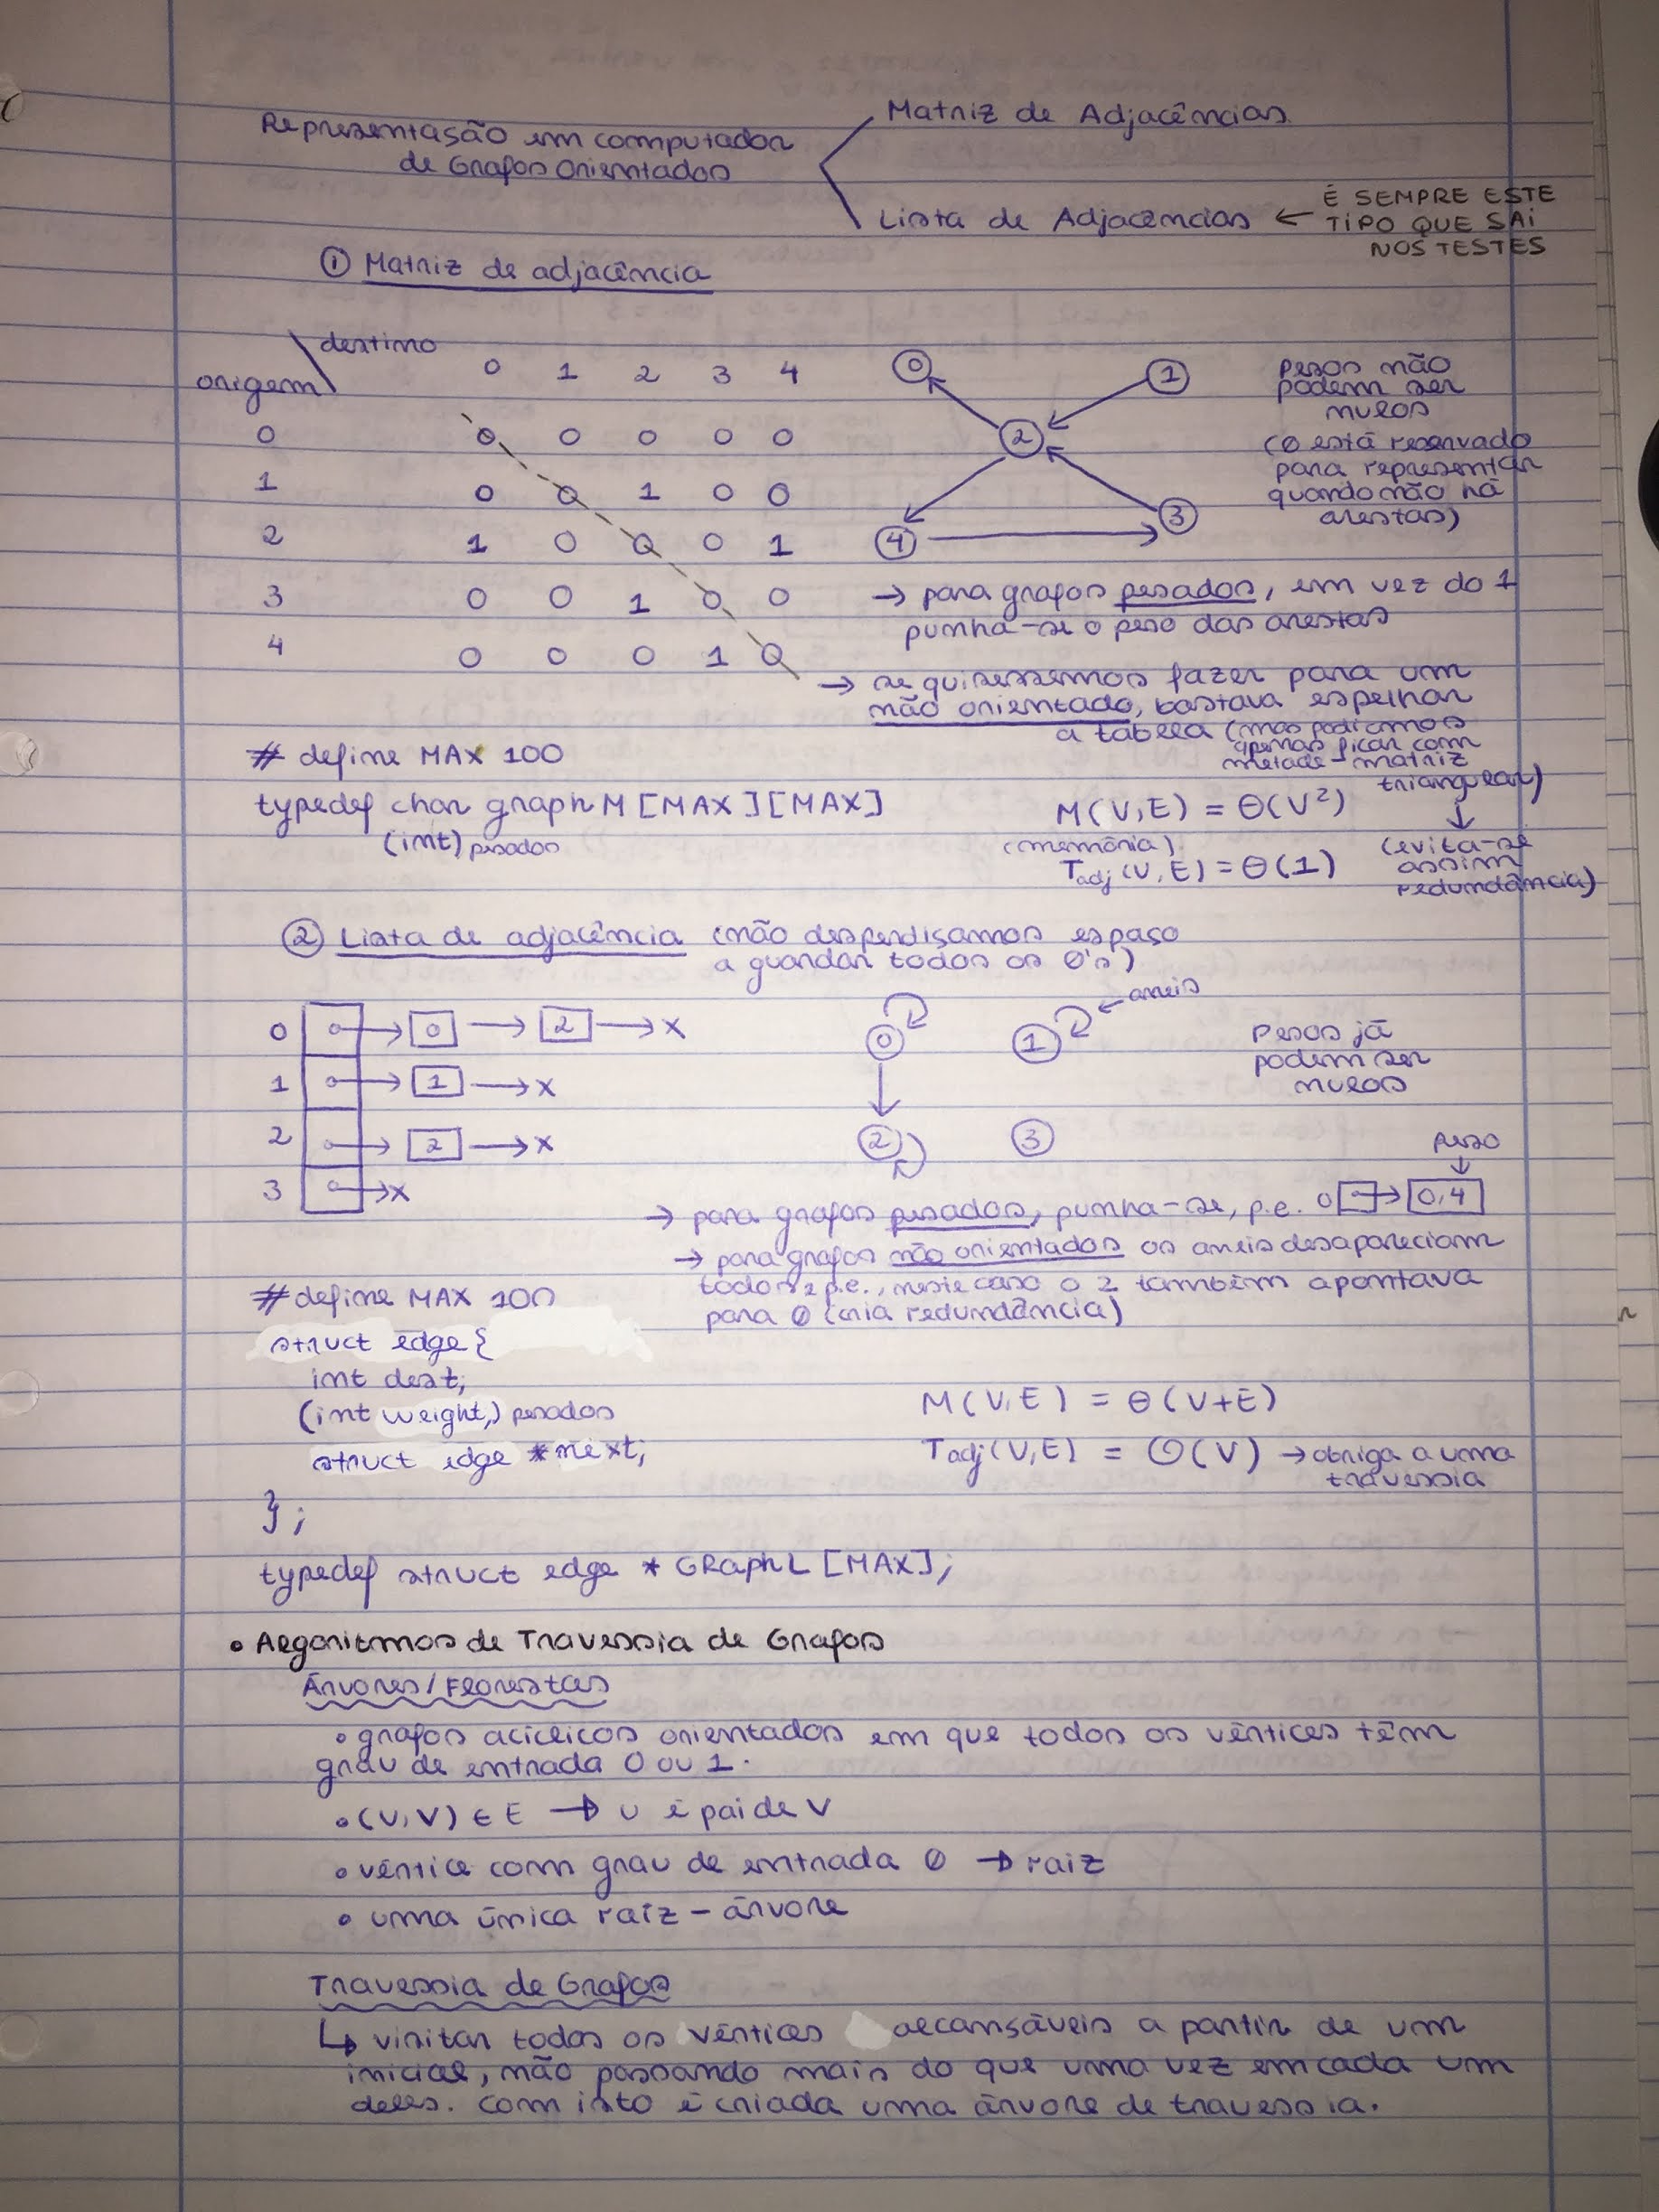 Representação em computador
de Grafos Orientados
Matriz de Adjacências
Lista de Adjacências ← É SEMPRE ESTE
TIPO QUE SAI
NOS TESTES
① Matriz de adjacência
destino
origem
0 1 2 3 4
0 0 0 0 0 0
1 0 0 1 0 0
2 1 0 0 0 1
3 0 0 1 0 0
4 0 0 0 1 0
0 1
2
4 3
Pesos não
podem ser
nulos
(0 está reservado
para representar
quando não há
arestas)
→ para grafos pesados, em vez do 1
punha-se o peso das arestas
→ se quisessemos fazer para um
não orientado, bastava espelhar
a tabela (mas podiamos
apenas ficar com
metade - matriz
triangular)
↓
(evita-se
assim
redundância)
# define MAX 100
typedef char graphM [MAX][MAX]
(int) pesados
M(V,E) = Θ(V²)
(memória)
Tadj(V,E) = Θ(1)
② Lista de adjacência (não desperdiçamos espaço
a guardar todos os 0's)
0 → 0 → 2 → x
1 → 1 → x
2 → 2 → x
3 → x
0 1 ← aneis
2 3
Pesos já
podem ser
nulos
peso
↓
→ para grafos pesados, punha-se, p.e. 0 → 0,4
→ para grafos não orientados os aneis desapareciam
todos e p.e., neste caso o 2 também apontava
para 0 (cria redundância)
# define MAX 100
struct edge {
int dest;
(int weight;) pesados
struct edge *next;
};
typedef struct edge * GRaphL [MAX];
M(V,E) = Θ(V+E)
Tadj(V,E) = O(V) → obriga a uma
travessia
• Algoritmos de Travessia de Grafos
Árvores/Florestas
• grafos acíclicos orientados em que todos os vértices têm
grau de entrada 0 ou 1.
• (U,V) ∈ E → U é pai de V
• vértice com grau de entrada 0 → raiz
• uma única raíz - árvore
Travessia de Grafos
↳ visitar todos os vértices alcansáveis a partir de um
inicial, não passando mais do que uma vez em cada um
deles. Com isto é criada uma árvore de travessia.